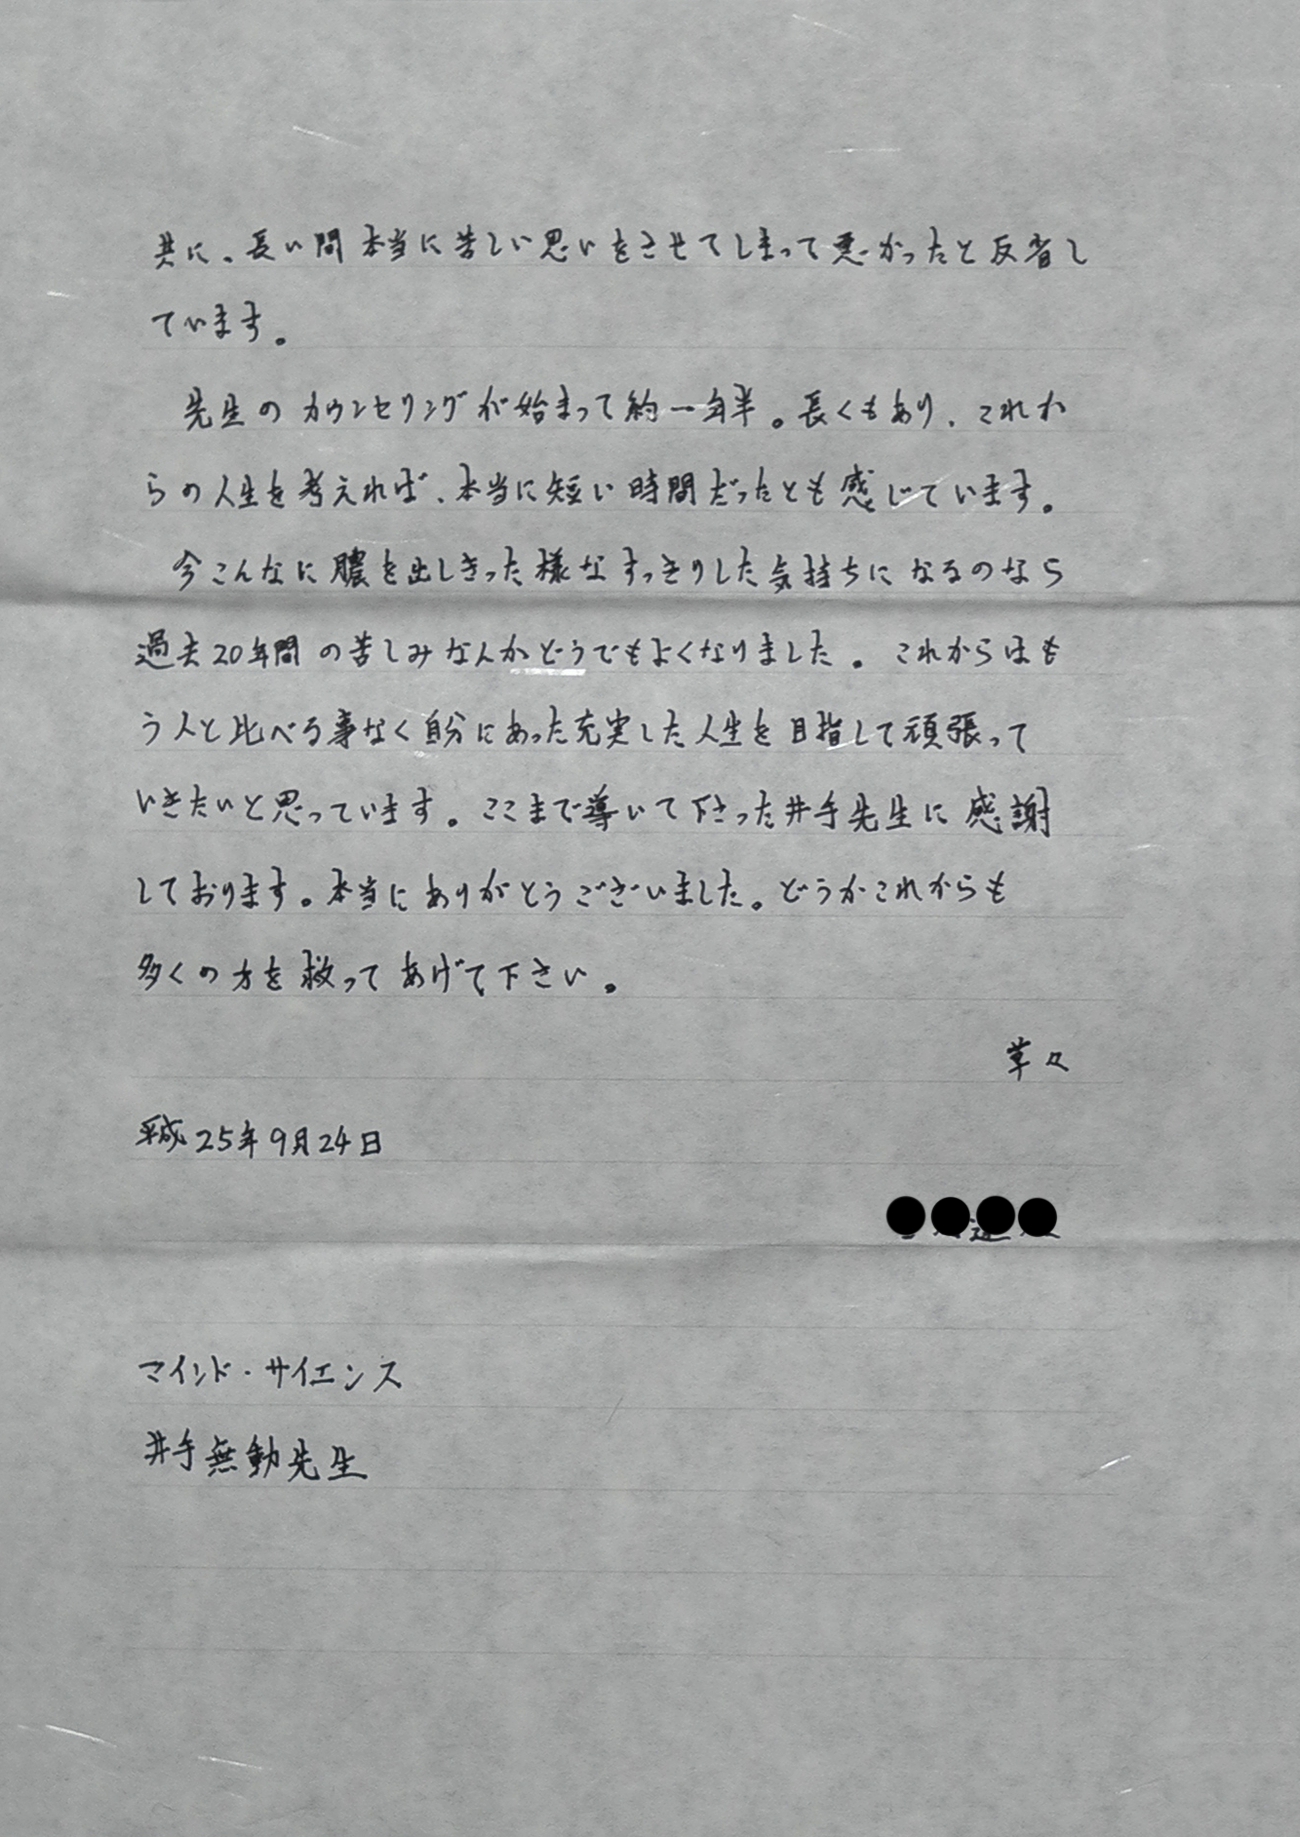 共に、長い間本当に苦しい思いをさせてしまって悪かったと反省し
ています。
先生のカウンセリングが始まって約一年半。長くもあり、これか
らの人生を考えれば、本当に短い時間だったとも感じています。
今こんなに膿を出しきった様なすっきりした気持ちになるのなら
過去20年間の苦しみなんかどうでもよくなりました。これからはも
う人と比べる事なく自分にあった充実した人生を目指して頑張って
いきたいと思っています。ここまで導いて下さった井手先生に感謝
しております。本当にありがとうございました。どうかこれからも
多くの方を救ってあげて下さい。
草々
平成25年9月24日
マインド・サイエンス
井手無動先生